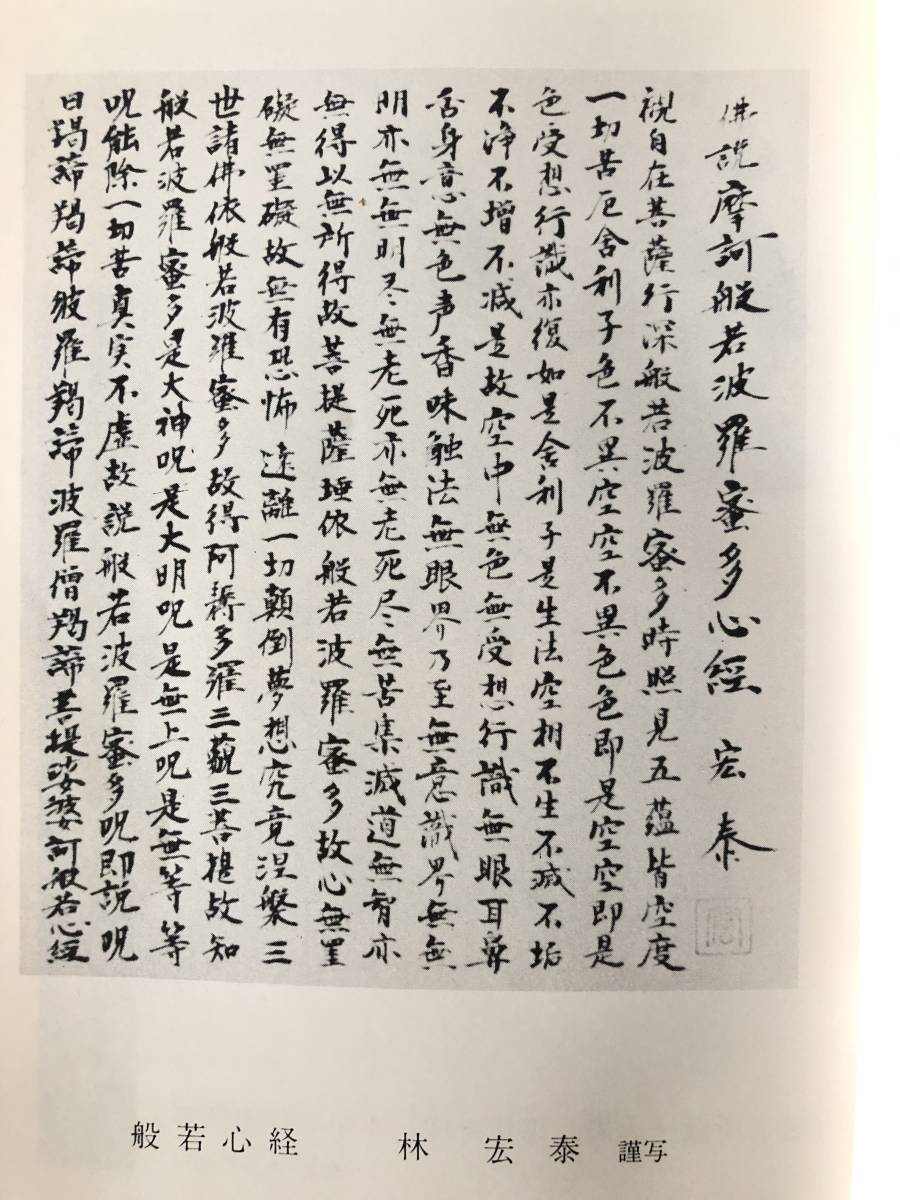 佛説摩訶般若波羅蜜多心經 宏泰
観自在菩薩行深般若波羅蜜多時照見五蘊皆空度
一切苦厄舎利子色不異空空不異色色即是空空即是
色受想行識亦復如是舎利子是生法空相不生不滅不垢
不浄不増不減是故空中無色無受想行識無眼耳鼻
舌身意無色声香味触法無眼界乃至無意識界無無
明亦無無明尽無老死亦無老死尽無苦集滅道無智亦
無得以無所得故菩提薩埵依般若波羅蜜多故心無罣
礙無罣礙故無有恐怖遠離一切顛倒夢想究竟涅槃三
世諸佛依般若波羅蜜多故得阿耨多羅三藐三菩提故知
般若波羅蜜多是大神呪是大明呪是無上呪是無等等
呪能除一切苦真実不虚故説般若波羅蜜多呪即説呪
曰羯諦羯諦波羅羯諦波羅僧羯諦菩提娑婆訶般若心経
般若心経 林宏泰 謹写